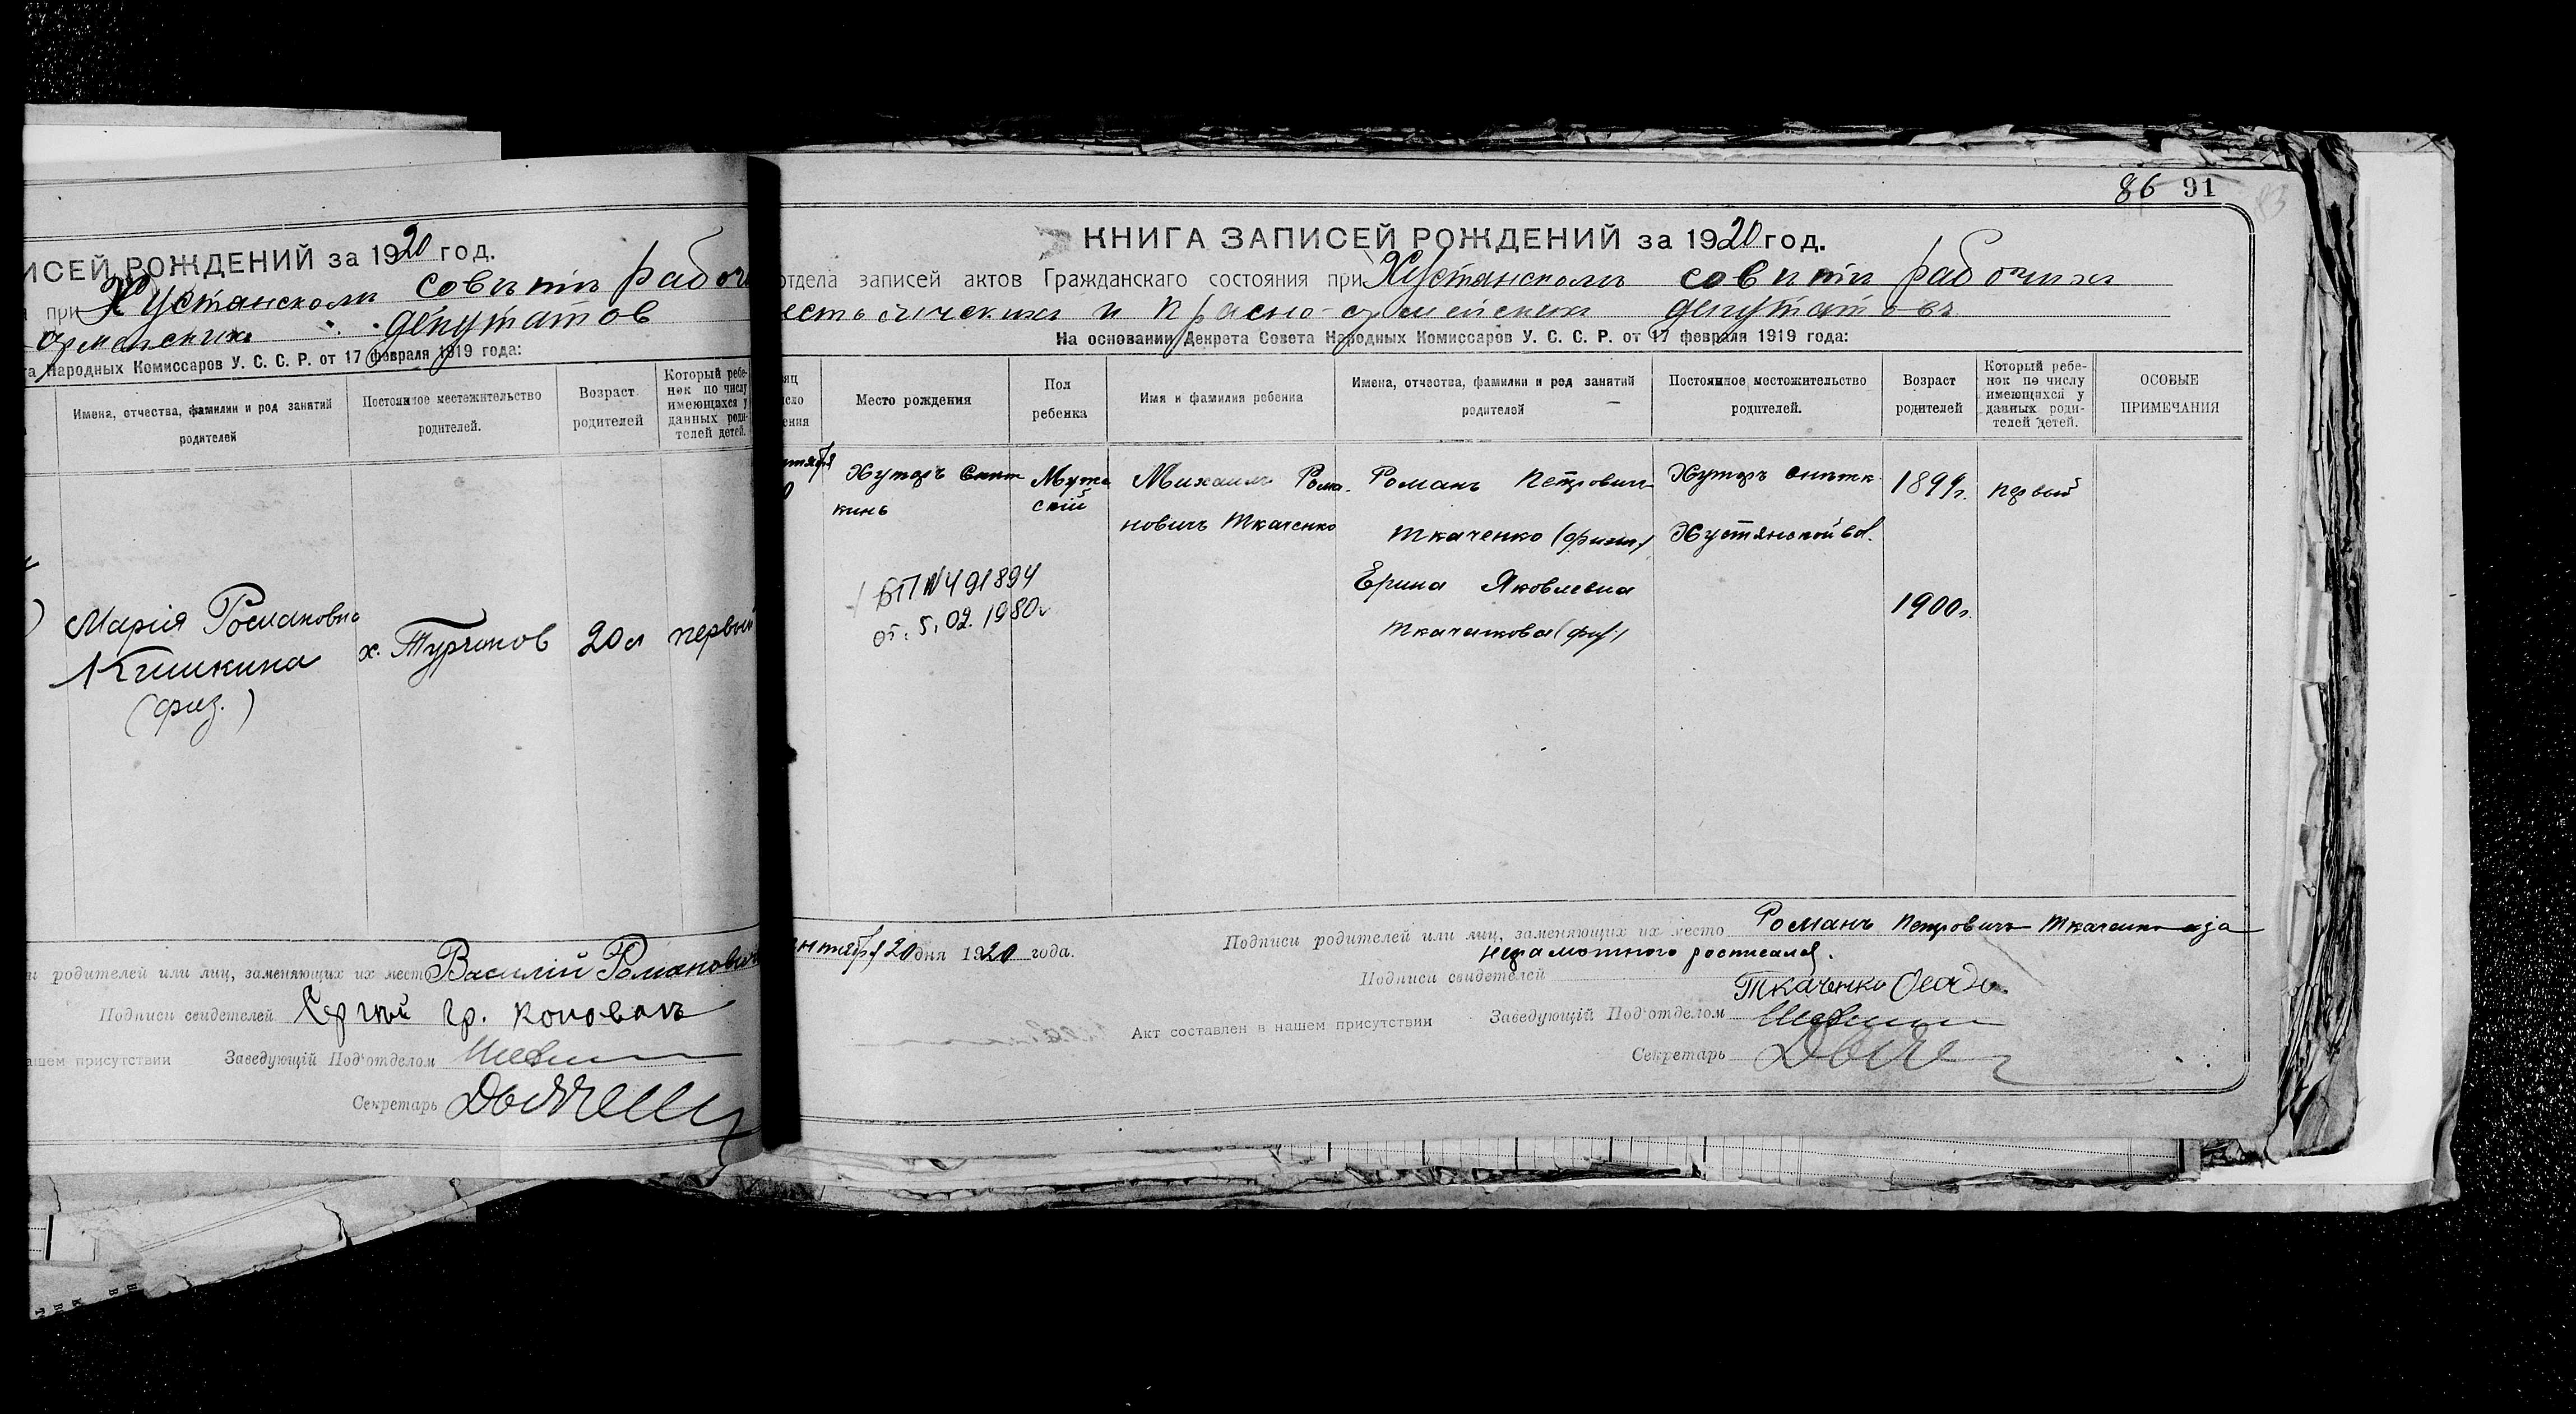 ИСЕЙ РОЖДЕНИЙ за 1920 год.
при Хустянском совѣтѣ рабоч
армейских депутатов
та Народных Комиссаров У. С. С. Р. от 17 февраля 1919 года:
Имена, отчества, фамилии и род занятий родителей
Постоянное местожительство родителей.
Возраст родителей
Который ребенок по числу имеющихся у данных родителей детей.
Марія Романовна
Кишкина
(физ.)
х. Турчинов
20 л
первый
и родителей или лиц, заменяющих их место Василій Романович
Подписи свидетелей Сергѣй Гр. Коновалъ
ашем присутствии Заведующій Под'отделом
Секретарь
86 91
83
КНИГА ЗАПИСЕЙ РОЖДЕНИЙ за 1920 год.
отдела записей актов Гражданскаго состояния при Хустянскомъ совѣтѣ рабочихъ
естьянскихъ и красно-армейскихъ депутатовъ
На основании Декрета Совета Народных Комиссаров У. С. С. Р. от 17 февраля 1919 года:
Место рождения
Пол ребенка
Имя и фамилия ребенка
Имена, отчества, фамилии и род занятий родителей
Постоянное местожительство родителей.
Возраст родителей
Который ребенок по числу имеющихся у данных родителей детей.
ОСОБЫЕ ПРИМЕЧАНИЯ
Хуторъ
Мужс
скій
Михаилъ Рома-
новичъ Ткаченко
Романъ Петрович
Ткаченко
Ерина Яковлевна
Ткаченкова
Хуторъ
Хустянской вол.
1899 г.
1900 г.
первый
№ 491894
от. 5.02.1980 г
20 дня 1920 года.
Подписи родителей или лиц, заменяющих их место Романъ Петровичъ Ткаченко а за
неграмотного росписался.
Подписи свидетелей Ткаченко
Акт составлен в нашем присутствии Заведующій Под'отделом
Секретарь